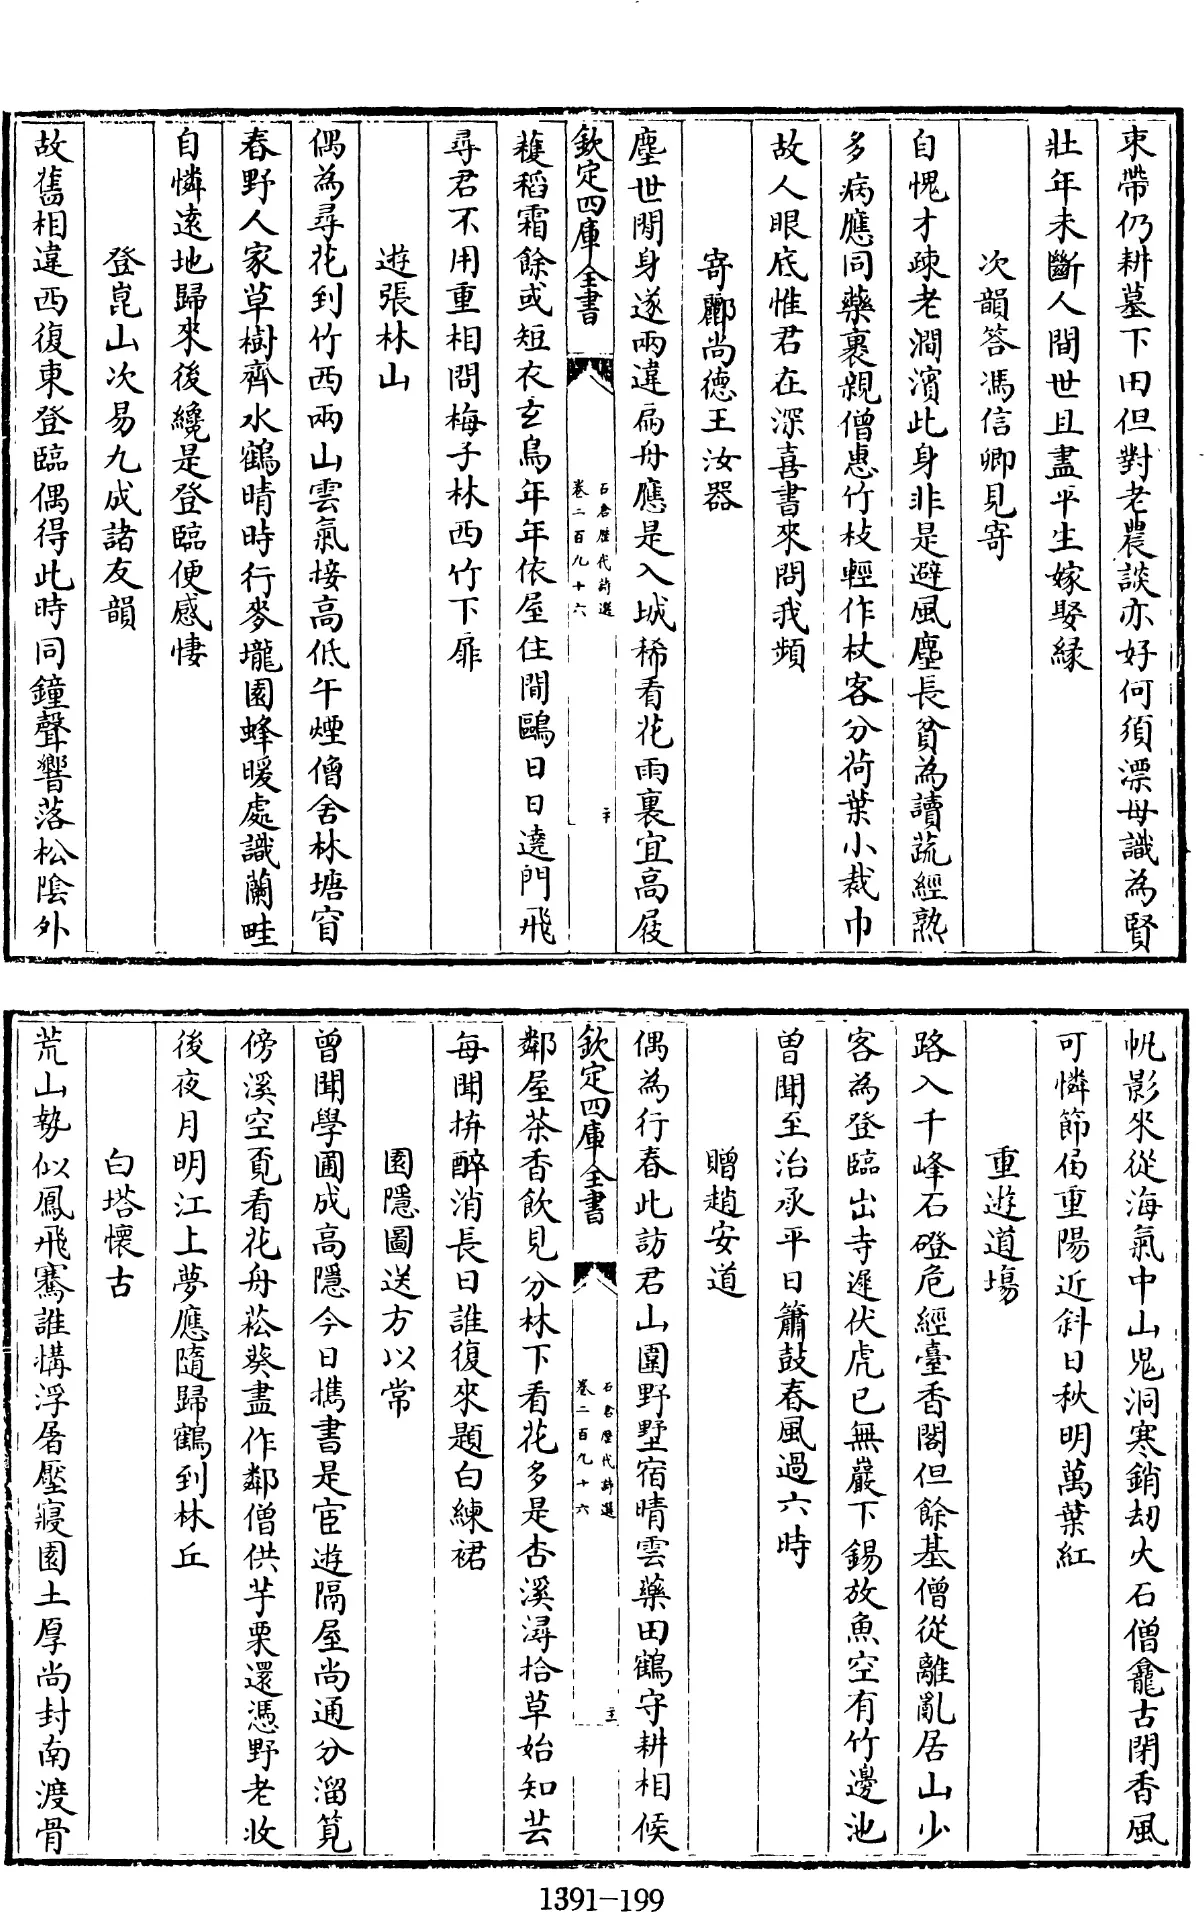 束帶仍耕墓下田但對老農談亦好何須漂母識為賢
壯年未斷人間世且盡平生嫁娶緣
次韻答馮信卿見寄
自愧才疎老澗濱此身非是避風塵長貧為讀蔬經熟
多病應同藥裹親僧惠竹枝輕作杖客分荷葉小裁巾
故人眼底惟君在深喜書來問我頻
寄酈尚德王汝器
塵世閒身遂兩違扁舟應是入城稀看花雨裏宜高屐
欽定四庫全書
石倉歷代詩選
卷二百九十六
二十
穫稻霜餘或短衣玄鳥年年依屋住閒鷗日日遶門飛
尋君不用重相問梅子林西竹下扉
遊張林山
偶為尋花到竹西兩山雲氣接高低午煙僧舍林塘窅
春野人家草樹齊水鶴晴時行麥壠園蜂暖處識蘭畦
自憐遠地歸來後纔是登臨便感悽
登崑山次易九成諸友韻
故舊相違西復東登臨偶得此時同鐘聲響落松陰外
帆影來從海氣中山鬼洞寒銷劫火石僧龕古閉香風
可憐節侷重陽近斜日秋明萬葉紅
重遊道場
路入千峰石磴危經臺香閣但餘基僧從離亂居山少
客為登臨出寺遲伏虎已無巖下錫放魚空有竹邊池
曽聞至治承平日簫鼓春風過六時
贈趙安道
偶為行春此訪君山圍野墅宿晴雲藥田鶴守耕相候
欽定四庫全書
石倉歷代詩選
卷二百九十六
二十一
鄰屋茶香飲見分林下看花多是杏溪潯拾草始知芸
每聞拚醉消長日誰復來題白練裙
園隱圖送方以常
曾聞學圃成高隱今日攜書是宦遊隔屋尚通分溜筧
傍溪空覔看花舟菘葵盡作鄰僧供芋栗還憑野老收
後夜月明江上夢應隨歸鶴到林丘
白塔懷古
荒山勢似鳳飛騫誰構浮屠壓寢園土厚尚封南渡骨
1391-199